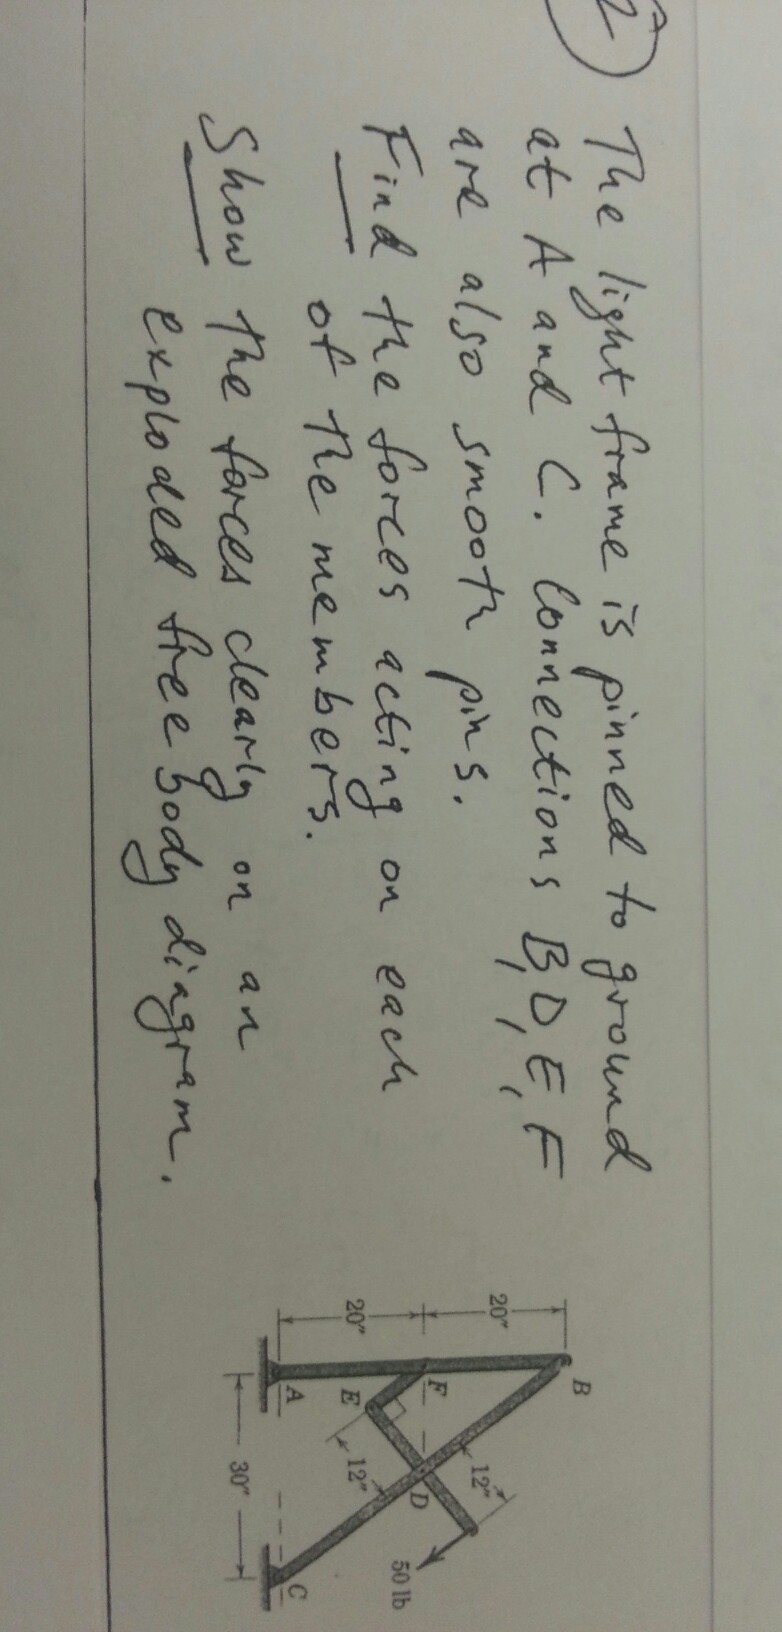 2
The light frame is pinned to ground
at A and C. Connections B, D, E, F
are also smooth pins.
Find the forces acting on each
of the members.
Show the forces clearly on an
exploded free body diagram.
B
20"
12"
F
D
50 lb
20"
E
12"
A
C
30"